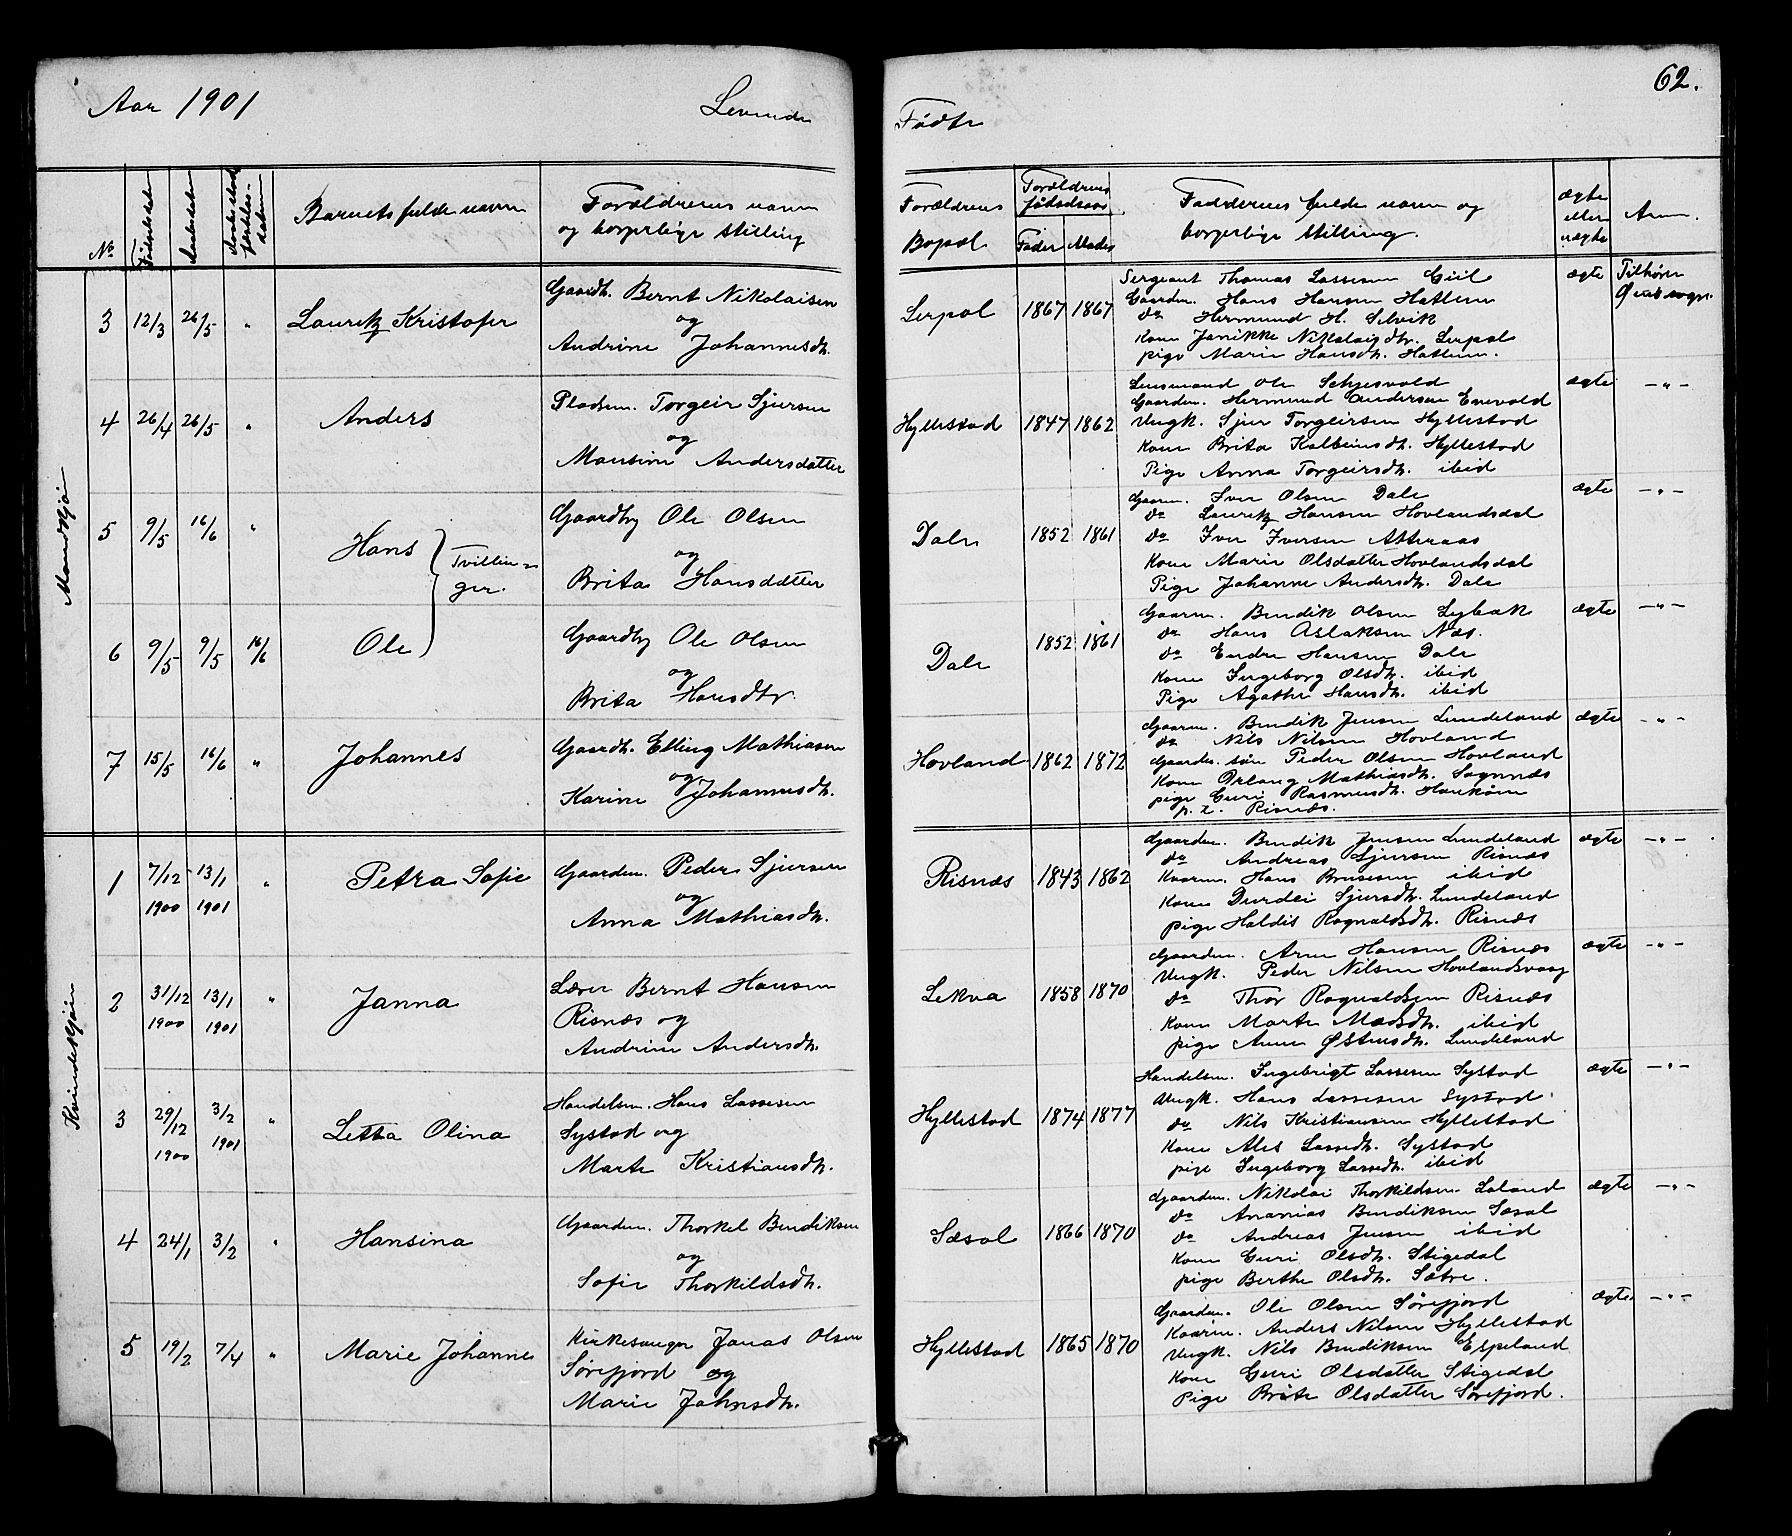 Aar 1901
Levende
Fødte
62.
No
Fødselsdat.
Daabsdat.
Barnets fulde navn
Forældrenes navn
og borgerlige stilling
Forældrenes
Bopæl
Forældrenes
fødselsaar
Fader
Moder
Faddernes fulde navn og
borgerlige stilling.
ægte
eller
uægte
Anm.
Mandkjøn
3 12/3 26/5 " Lauritz Kristofer
Gaardb. Bernt Nikolaisen
og
Andrine Johannesdtr.
Lerpol 1867 1867
Sergeant Thomas Lassesen Giil
Gaardm. Hans Hansen Hatlem
do Hermund H. Selvik
Kone Janikke Nikolaisdtr. Lerpol
pige Marie Hansdtr. Hatlem.
ægte
Tilhører
4 26/4 26/5 " Anders
Pladsm. Torgeir Sjursen
og
Monsine Andersdatter
Hyllestad 1847 1862
Lensmand Ole Schjesvold
Gaardm. Hermund Andersen Enevold
Ungk. Sjur Torgeirsen Hyllestad
Kone Brita Kolbeinsdtr. Hyllestad
Pige Anna Torgeirsdtr. ibid
ægte — " —
5 9/5 16/6 " Hans
Tvillin-
ger.
Gaardbr Ole Olsen
og
Brita Hansdatter
Dale 1852 1861
Gaarm. Iver Olsen Dale
do Lauritz Hansen Hovlandsdal
do Iver Iversen Atteraas
Kone Marie Olsdatter Hovlandsdal
Pige Johanne Andersdtr. Dale
ægte — " —
6 9/5 9/5 16/6 Ole
Gaardbr Ole Olsen
og
Brita Hansdtr.
Dale 1852 1861
Gaarm. Bendik Olsen Lybæk
do Hans Aslaksen Næs.
do Endre Hansen Dale
Kone Ingeborg Olsdtr. ibid
Pige Agathe Hansdtr. ibid
ægte — " —
7 15/5 16/6 " Johannes
Gaardb. Elling Mathiasen
og
Karine Johannesdtr.
Hovland 1862 1872
Gaarm. Bendik Jensen Lundeland
do Nils Nilsen Hovland
Gaardm. søn Peder Olsen Hovland
Kone Orlaug Mathiasdtr. Sognnæs
pige Guri Rasmusdtr.
p. t. Risnæs.
ægte — " —
Kvindekjøn
1 7/12 1900 13/1 1901 " Petra Sofie
Gaardm. Peder Sjursen
og
Anna Mathiasdtr.
Risnæs 1843 1862
Gaardm. Bendik Jensen Lundeland
do Andreas Sjursen Risnæs
Kaarm. Hans Brusesen ibid
Kone Durdei Sjursdtr. Lundeland
pige Haldis Ragnaldsdtr. Risnæs
ægte — " —
2 31/12 1900 13/1 1901 " Janna
Lærer Bernt Hansen
Risnæs og
Andrine Andersdtr.
Lekva 1858 1870
Gaardm. Arne Hansen Risnæs
Ungk. Peder Nilsen Hovlandsvaag
do Thor Ragnaldsen Risnæs
Kone Marte Madsdtr. ibid
pige Anne Østensdtr. Lundeland
ægte — " —
3 29/12 1900 3/2 1901 " Letta Olina
Handelsm. Hans Lassesen
Systad og
Marte Kristiansdtr.
Hyllestad 1874 1877
Handelsm. Ingebrigt Lassesen Systad
Ungk. Hans Lassesen Systad
do Nils Kristiansen Hyllestad
Kone Ales Lassedtr. Systad
pige Ingeborg Lassedtr. ibid
ægte — " —
4 24/1 3/2 " Hansina
Gaardm. Thorkel Bendiksen
og
Sofie Thorkildsdtr.
Sæsol 1866 1870
Gaardm. Nikolai Thorkildsen Løland
do Ananias Bendiksen Sæsol
do Andreas Jensen ibid
Kone Guri Olsdtr. Stigedal
pige Berthe Olsdtr. Sætre.
ægte — " —
5 19/2 7/4 " Marie Johanne
Kirkesanger Jonas Olsen
Sørefjord og
Marie Johnsdtr.
Hyllestad 1865 1870
Gaardm. Ole Olsen Sørefjord
Kaarm. Anders Nilsen Hyllestad
Ungk. Nils Bendiksen Espeland
Kone Guri Olsdatter Stigedal
Pige Brite Olsdatter Sørefjord.
ægte. — " —